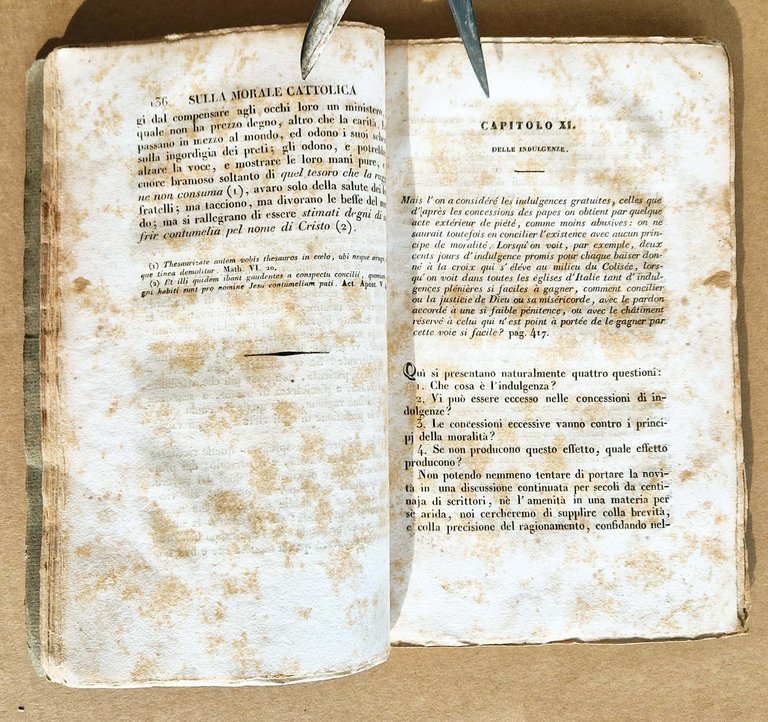 136 SULLA MORALE CATTOLICA
gi dal compensare agli occhi loro un ministero,
quale non ha prezzo degno, altro che la carità,
passano in mezzo al mondo, ed odono i suoi
sulla ingordigia dei preti; gli odono, e
alzare la voce, e mostrare le loro mani pure, e
cuore bramoso soltanto di quel tesoro che la
ne non consuma (1), avaro solo della salute dei
fratelli; ma tacciono, ma divorano le beffe del
do; ma si rallegrano di essere stimati degni di
frir contumelia pel nome di Cristo (2).
(1) Thesaurizate autem vobis thesauros in cœlo, ubi neque
que tinea demolitur. Math. VI. 20.
(2) Et illi quidem ibant gaudentes a conspectu concilii,
gni habiti sunt pro nomine Jesu contumeliam pati. Act. Apost. V
CAPITOLO XI.
DELLE INDULGENZE.
Mais l'on a considéré les indulgences gratuites, celles que
d'après les concessions des papes on obtient par quelque
acte extérieur de piété, comme moins abusives: on ne
saurait toutefois en concilier l'existence avec aucun prin-
cipe de moralité. Lorsqu'on voit, par exemple, deux
cents jours d'indulgence promis pour chaque baiser don-
né à la croix qui s'élève au milieu du Colisée, lors-
qu'on voit dans toutes les églises d'Italie tant d'indul-
gences plénières si faciles à gagner, comment concilier
ou la justice de Dieu ou sa miséricorde, avec le pardon
accordé a une si faible pénitence, ou avec le châtiment
réservé à celui qui n'est point à portée de le gagner par
cette voie si facile? pag. 417.
Quì si presentano naturalmente quattro questioni:
1. Che cosa è l'indulgenza?
2. Vi può essere eccesso nelle concessioni di in-
dulgenze?
3. Le concessioni eccessive vanno contro i princi-
pj della moralità?
4. Se non producono questo effetto, quale effetto
producono?
Non potendo nemmeno tentare di portare la novi-
tà in una discussione continuata per secoli da centi-
naja di scrittori, nè l'amenità in una materia per
sè arida, noi cercheremo di supplire colla brevità,
e colla precisione del ragionamento, confidando nel-